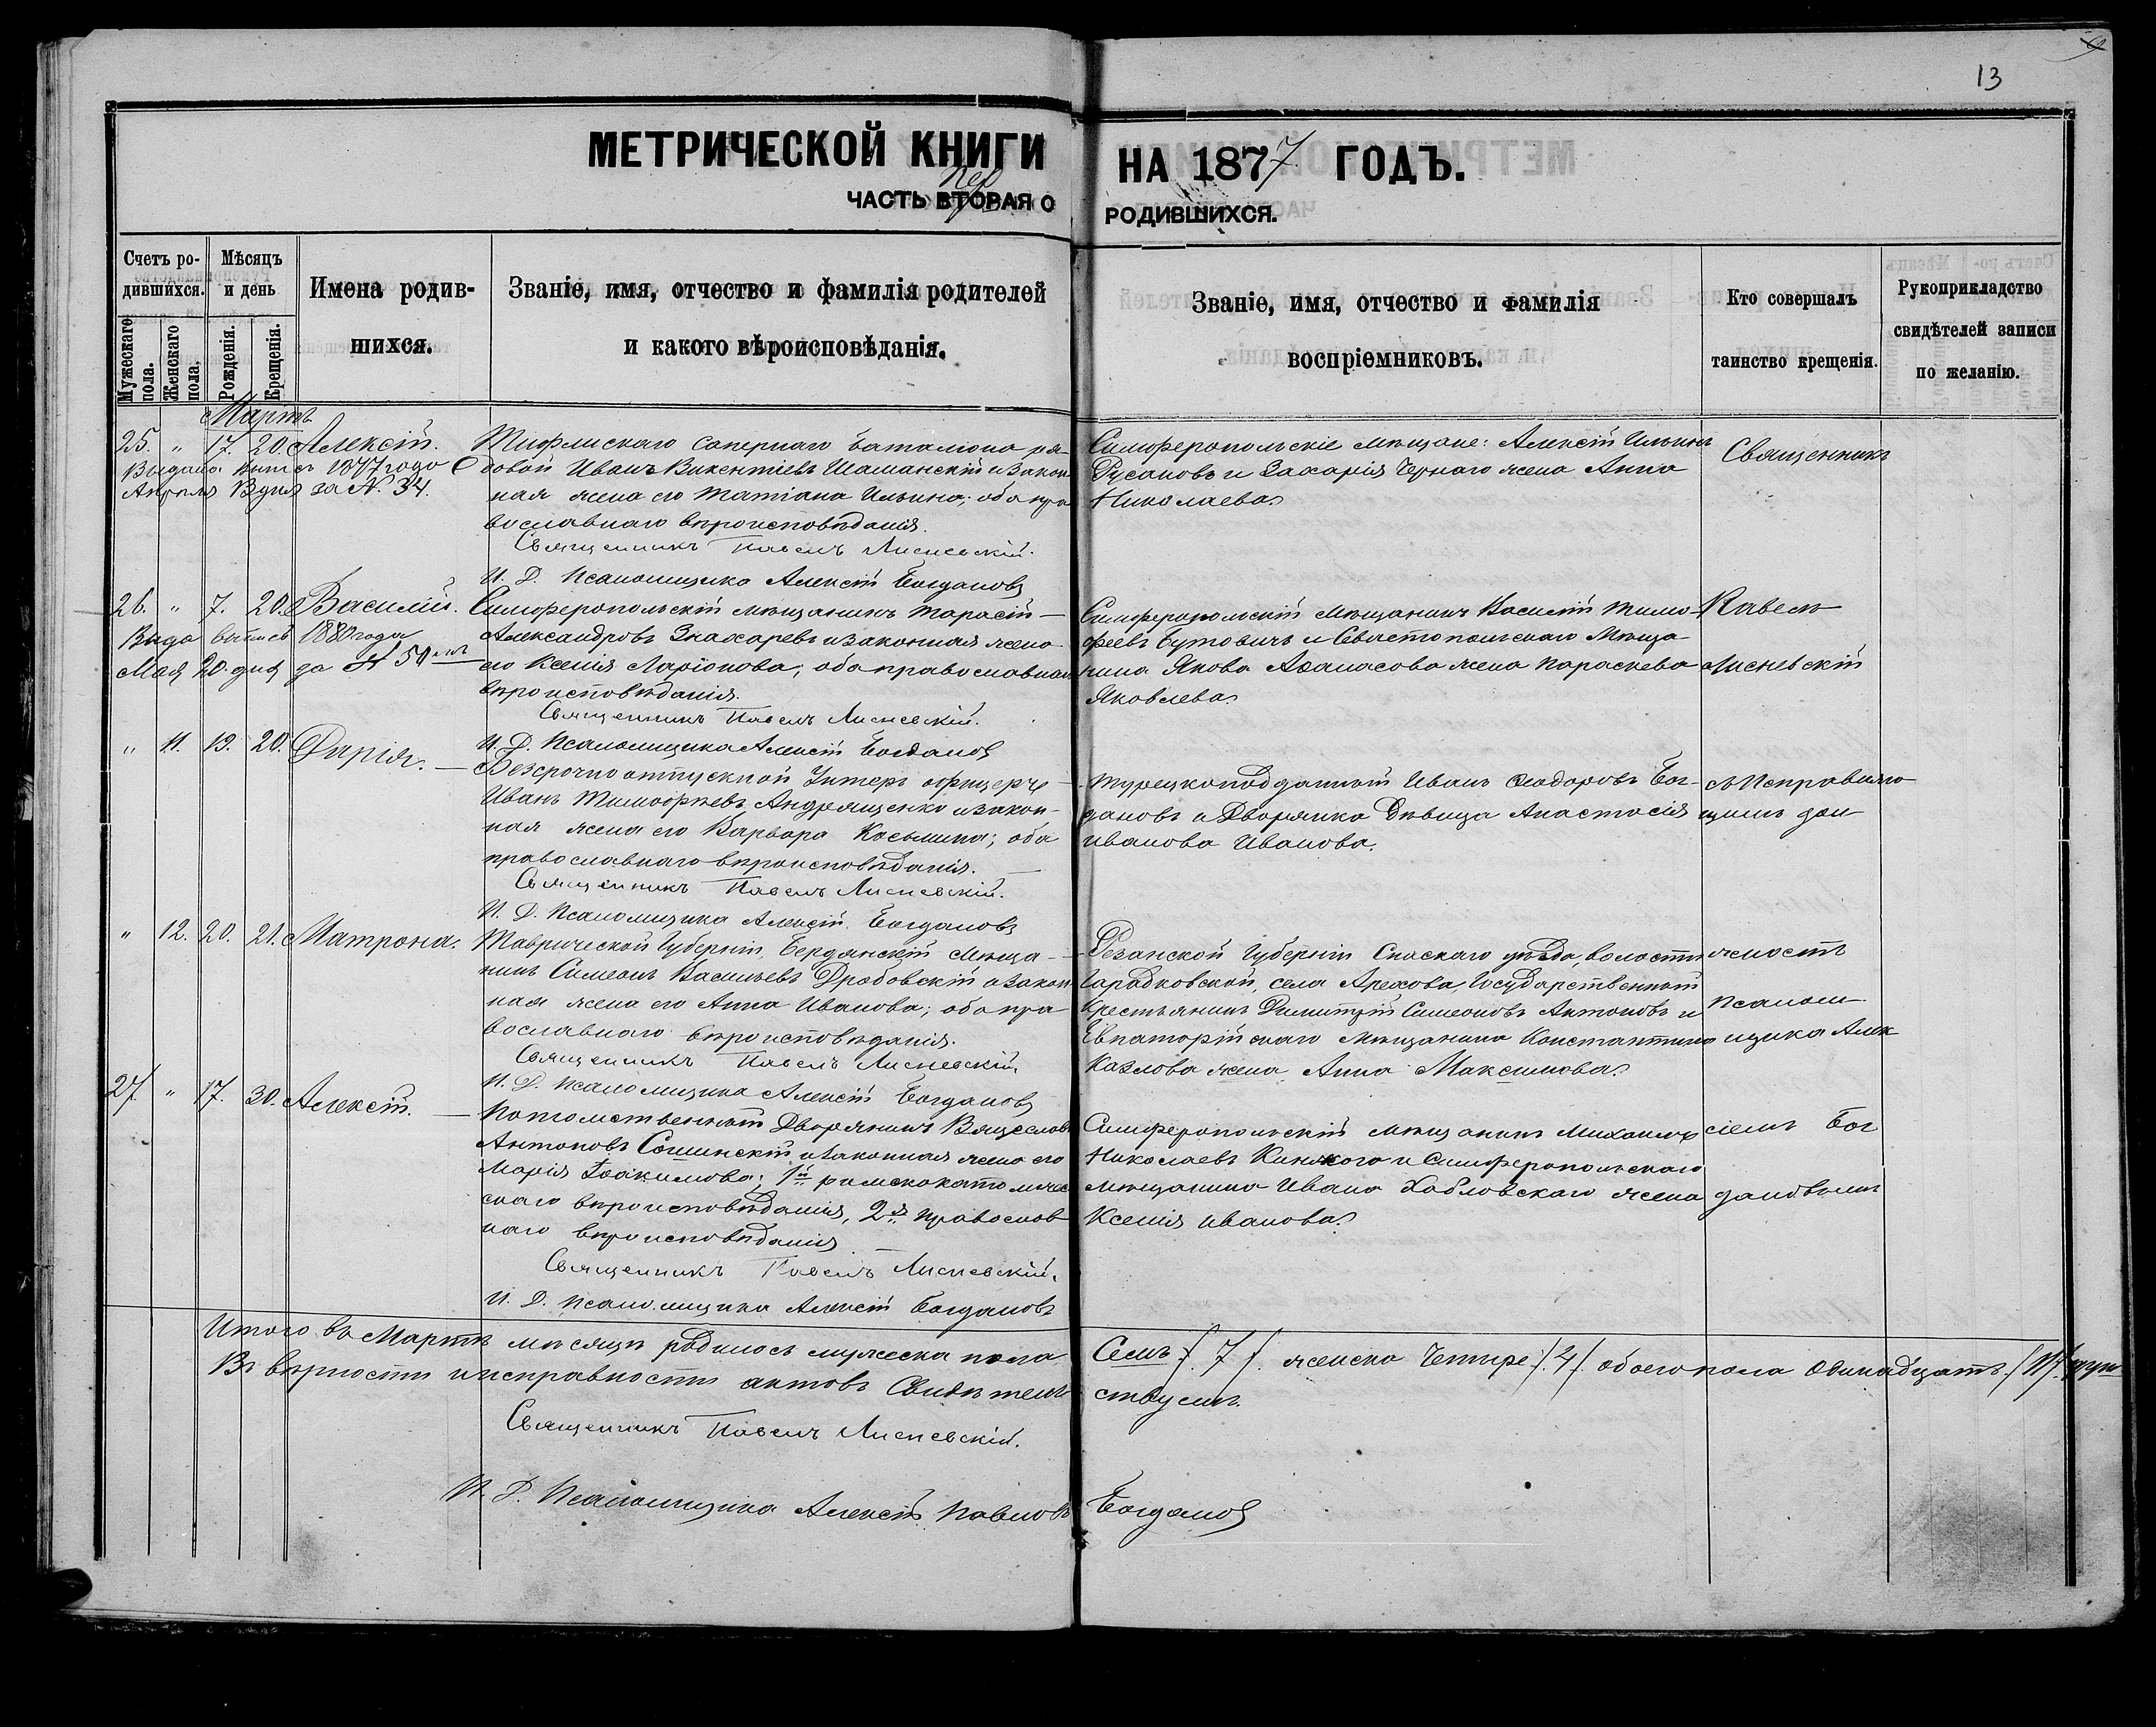 13
МЕТРИЧЕСКОЙ КНИГИ НА 1877 ГОДЪ.
Пер
ЧАСТЬ ВТОРАЯ О РОДИВШИХСЯ.
Счетъ родившихся.
Мужескаго пола.
Женскаго пола.
Мѣсяцъ и день
Рожденія.
Крещенія.
Имена родив-
шихся.
Званіе, имя, отчество и фамилія родителей
и какого вѣроисповѣданія.
Званіе, имя, отчество и фамилія
воспріемниковъ.
Кто совершалъ
таинство крещенія.
Рукоприкладство
свидѣтелей записи
по желанію.
Мартъ
25. " 17. 20. Алексій.
Выдана выпись 1877 года
Апрѣля 3 дня за №. 34.
Тифлискаго сапернаго баталіона ря-
довой Иванъ Викентіевъ Шаманскій и закон
ная жена его Татіана Ильина; оба пра
вославнаго вѣроисповѣданія.
Священникъ Павелъ Лисневскій.
И. Д. Псаломщика Алексій Богдановъ
Симферопольскіе мѣщане: Алексій Ильинъ
Русановъ и Захарія Чернаго жена Анна
Николаева.
26. " 7. 20. Василій.
Выда выпись 1880 года
Мая 20 дня за № 50
Симферопольскій мѣщанинъ Тарасій
Александровъ Знахаревъ и законная жена
его Ксенія Ларіонова; оба православнаго
вѣроисповѣданія.
Священникъ Павелъ Лисневскій.
И. Д. Псаломщика Алексій Богдановъ
Симферопольскій Мѣщанинъ Василій Тимо-
феевъ Бутовичъ и Севастопольскаго Мѣща
нина Якова Аѳанасова жена Параскева
Яковлева.
" 11. 19. 20. Дарія.
Безсрочноотпускной Унтеръ офицеръ
Иванъ Тимофѣевъ Андрященко и закон-
ная жена его Варвара Косьмина; оба
православнаго вѣроисповѣданія.
Священникъ Павелъ Лисневскій.
И. Д. Псаломщика Алексій Богдановъ
Турецкоподданный Иванъ Ѳеодоровъ Бог-
дановъ и Дворянка Дѣвица Анастасія
Иванова Иванова.
" 12. 20. 21. Матрона.
Таврической Губерніи, Бердянскій Мѣща-
нинъ Симеонъ Васильевъ Дробовскій и закон
ная жена его Анна Иванова; оба пра-
вославнаго вѣроисповѣданія.
Священникъ Павелъ Лисневскій.
И. Д. Псаломщика Алексій Богдановъ
Резанской Губерніи Спаскаго уѣзда, волости
Гарадковской, села Арехова, Государственный
Крестьянинъ Димитрій Симеоновъ Антоновъ и
Евпаторійскаго Мѣщанина Константина
Казлова жена Анна Максимова.
27. " 17. 30. Алексій.
Потомственный Дворянинъ Вяцеславъ
Антоновъ Сошинскій и законная жена его
Марія Іоакимова; 1й римскокатоличес
скаго вѣроисповѣданія, 2я православ
наго вѣроисповѣданія
Священникъ Павелъ Лисневскій.
И. Д. Псаломщика Алексій Богдановъ
Симферопольскій мѣщанинъ Михаилъ
Николаевъ и Симферопольскаго
мѣщанина Ивана Хобловскаго жена
Ксенія Иванова.
Священникъ
Павелъ
Лисневскій
съ Исправляю
щимъ дол
жность
псалом
щика Алек
сіемъ Бог
дановымъ
Итого въ Мартѣ мѣсяцѣ родилось мужеска пола Семь /.7/. женска Четыре /.4/. обоего пола Одинадцать /.11/. душъ
Въ вѣрности и исправности актовъ Свидѣтель ствуемъ.
Священникъ Павелъ Лисневскій.
И. Д. Псаломщика Алексій Павловъ Богдановъ